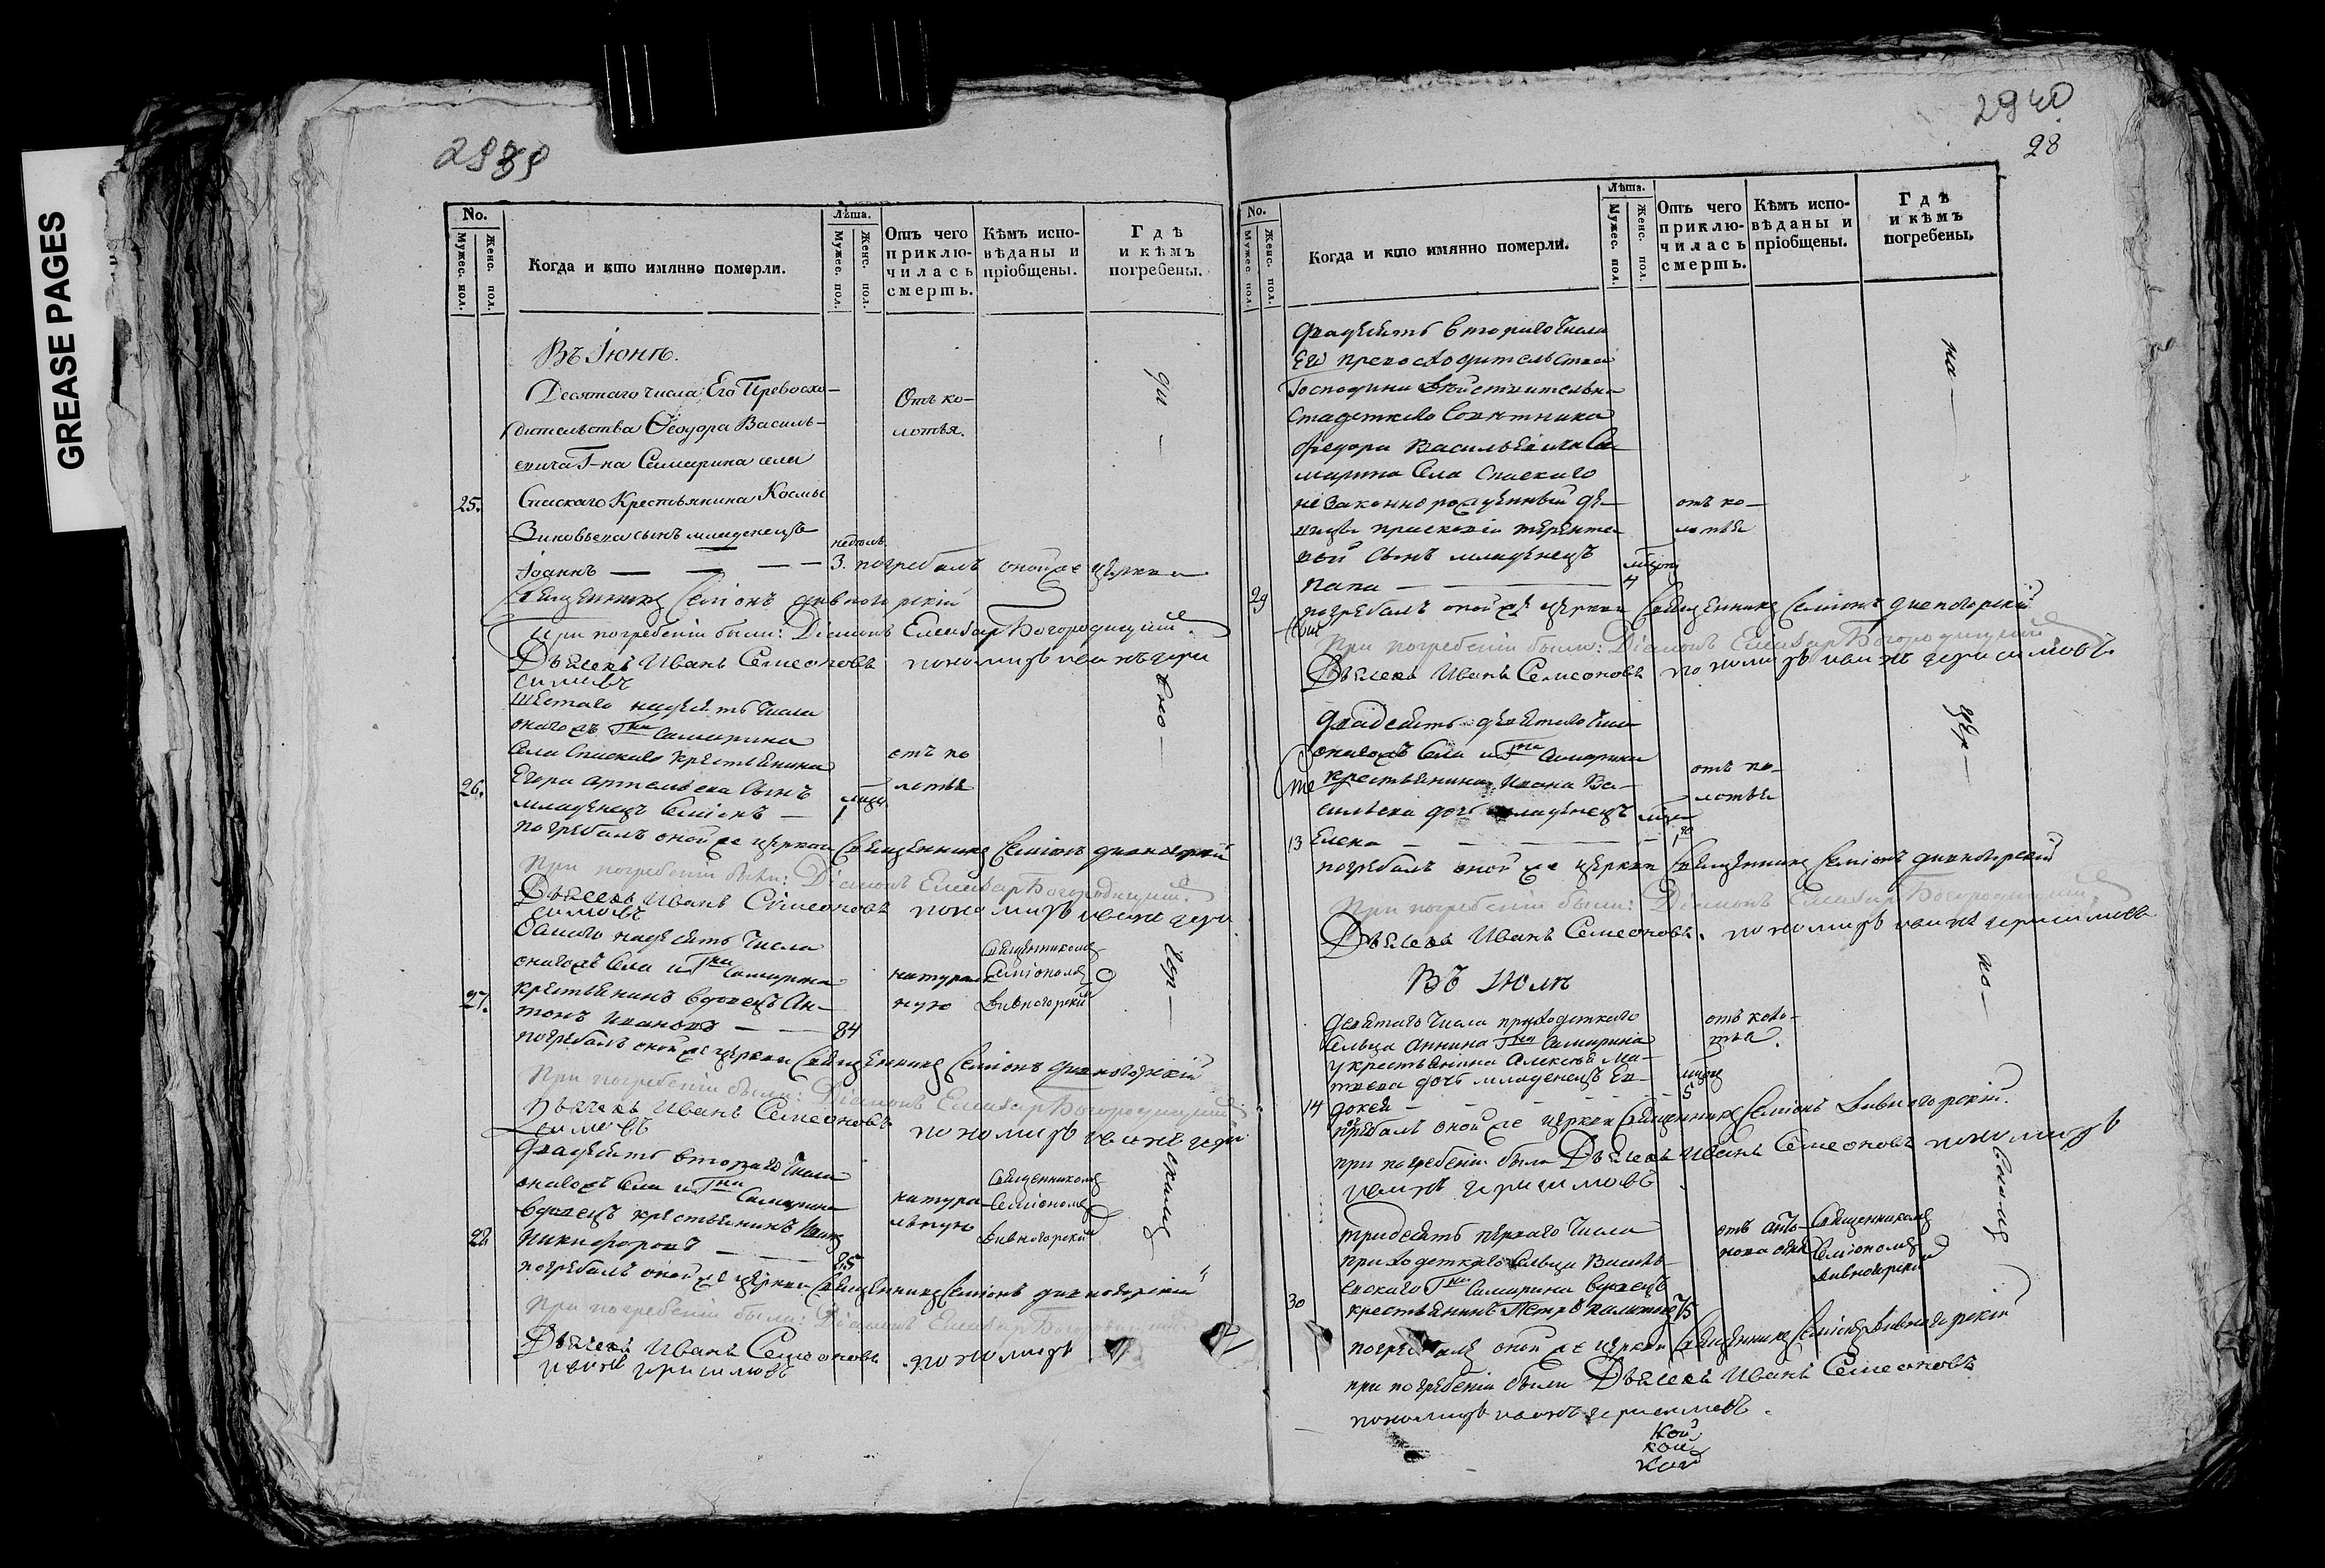 GREASE PAGES
2939
No.
Мужес. пол.
Женс. пол.
Когда и кто имянно померли.
Лѣта.
Мужес. пол.
Женс. пол.
Отъ чего приключилась смерть.
Кѣмъ исповѣданы и пріобщены.
Гдѣ и кѣмъ погребены.
Въ Іюнѣ.
Десятаго числа Его Превосхо-
дительства Ѳеодора Василь-
евича Г-на Самарина села
25. Спаскаго Крестьянина Космы
Зиновьева сынъ младенецъ
Іоаннъ — — — недѣль 3.
Отъ ко-
лотья.
погребалъ оной же церкви
Священникъ Семіонъ Дивногорскій
При погребеніи были: Діаконъ Елеазаръ Богородицкій.
Дьячекъ Иванъ Семеоновъ пономарь иванъ гера
симовъ
шестаго надесять числа
онагожъ Гна Самарина
села Спаскаго крестьянина
26. Егора артемьева сынъ
младенецъ Семіонъ — 1
отъ ко
лотья
погребалъ оной же церкви Священникъ Семіонъ дивногорскій
При погребеніи были: Діаконъ Елеазаръ Богородицкій.
Дьячекъ Иванъ Семеоновъ пономарь иванъ гера
симовъ
надесять числа
онагожъ села и Гна Самарина
27. крестьянинъ вдовецъ Ан-
тонъ Ивановъ — — 84
натураль
ную
Священникомъ
Семіономъ
Дивногорски
погребалъ оной же церкви Священникъ Семіонъ дивногорскій
При погребеніи были: Діаконъ Елеазаръ Богородицкій
Дьячекъ Иванъ Семеоновъ пономарь иванъ гера
симовъ
двадесять втораго числа
онагожъ села и Гна Самарина
вдовецъ крестьянинъ
28 Никифоровъ — 85
натура-
льную
Священникомъ
Семіономъ
Дивногорски
погребалъ оной же церкви Священникъ Семіонъ дивногорскій
При погребеніи были: Діаконъ Елеазаръ
Дьячекъ Иванъ Семеоновъ пономарь
иванъ герасимовъ
2940
28
No.
Мужес. пол.
Женс. пол.
Когда и кто имянно померли.
Лѣта.
Мужес. пол.
Женс. пол.
Отъ чего приключилась смерть.
Кѣмъ исповѣданы и пріобщены.
Гдѣ и кѣмъ погребены.
двадесять втораго числа
Его превосходительства
Господина Дѣйствительна
Статскаго Совѣтника
Федора Васильевича Са-
марина Села Спаскаго
незаконнорожденный дѣ-
вицы прасковіи терентье
вой сынъ младенецъ
29 — 4
отъ ко-
лотья
погребалъ оной же церкви Священникъ Семіонъ дивногорскій
При погребеніи были: Діаконъ Елеазаръ Богородицкій
Дьячекъ Иванъ Семеоновъ пономарь иванъ герасимовъ.
двадесять девятаго числа
онагожъ села и Гна Самарина
крестьянина Ивана Ва-
сильева дочь младенецъ
13 Елена
отъ ко-
лотья
погребалъ оной же церкви Священникъ Семіонъ дивногорскій
При погребеніи были: Діаконъ Елеазаръ Богородицкій
Дьячекъ Иванъ Семеоновъ. пономарь иванъ герасимовъ
Въ Іюлѣ
девятаго числа приходскаго
сельца Аннина Гна Самарина
у крестьянина Алексѣя Ма-
твева дочь младенецъ Ев-
14 докея — — 5
отъ коло-
тья.
погребалъ оной же церкви Священникъ Семіонъ Дивногорскій.
при погребеніи были Дьячекъ Иванъ Семеоновъ пономарь
иванъ герасимовъ
тридесять перваго числа
приходскаго сельца Василь-
евскаго Гна Самарина вдовецъ
30 крестьянинъ Петръ 75
Священникомъ
Семіономъ
Дивногорски
погребалъ оной же церкви Священникъ Семіонъ Дивногорскій
при погребеніи были Дьячекъ Иванъ Семеоновъ
пономарь иванъ герасимовъ.
кой
кой
кой